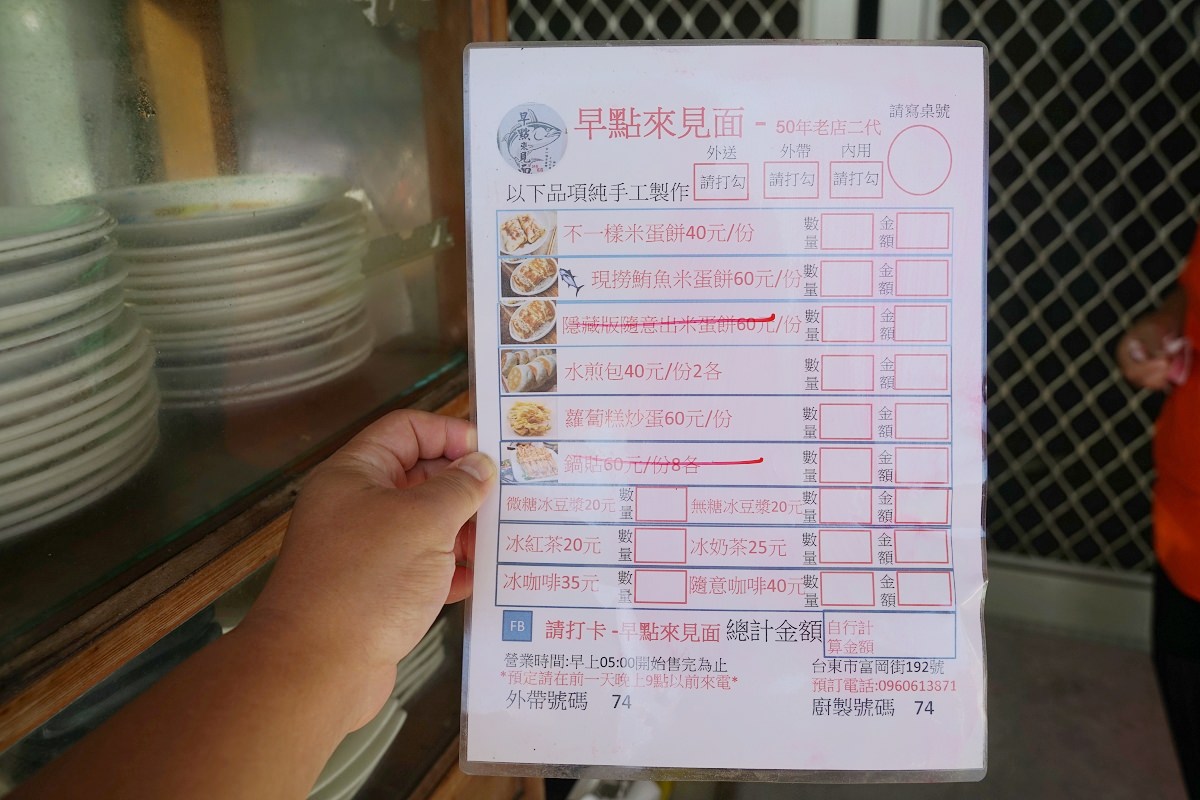 早點來見面
早點來見面 - 50年老店二代
請寫桌號
外送 外帶 內用
請打勾 請打勾 請打勾
以下品項純手工製作
不一樣米蛋餅40元/份 數量 金額
現撈鮪魚米蛋餅60元/份 數量 金額
隱藏版隨意出米蛋餅60元/份 數量 金額
水煎包40元/份2各 數量 金額
蘿蔔糕炒蛋60元/份 數量 金額
鍋貼60元/份8各 數量 金額
微糖冰豆漿20元 數量 無糖冰豆漿20元 數量 金額
冰紅茶20元 數量 冰奶茶25元 數量 金額
冰咖啡35元 數量 隨意咖啡40元 數量 金額
FB 請打卡 -早點來見面 總計金額 自行計算金額
營業時間:早上05:00開始售完為止 台東市富岡街192號
*預定請在前一天晚上9點以前來電* 預訂電話:0960613871
外帶號碼 74 廚製號碼 74